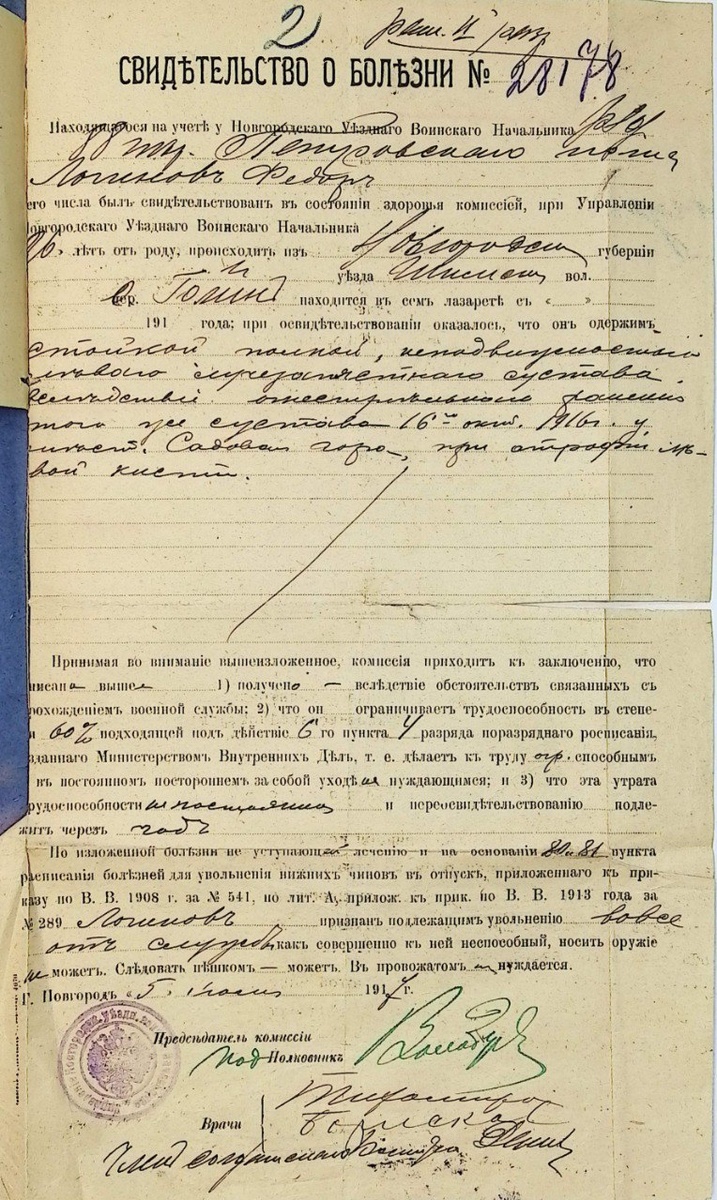 2
СВИДѢТЕЛЬСТВО О БОЛѢЗНИ № 28178
Находящагося на учетѣ у Новгородскаго Уѣзднаго Воинскаго Начальника ряд
88 пѣх. Петровскаго полка
Логиновъ Федоръ
его числа былъ свидѣтельствованъ въ состояніи здоровья комиссіей, при Управленіи
Новгородскаго Уѣзднаго Воинскаго Начальника
лѣтъ отъ роду, происходитъ изъ Новгородской губерніи
уѣзда вол.
дер. находится въ семъ лазаретѣ съ « »
191 года; при освидѣтельствованіи оказалось, что онъ одержимъ
стойкой полной, неподвижностью
лѣваго лучезапястнаго сустава
вслѣдствіи огнестрѣльнаго раненія
того же сустава 16го окт. 1916г. у
Садовая гора, при атрофіи лѣ-
вой кисти.
Принимая во вниманіе вышеизложенное, комиссія приходитъ къ заключенію, что
писана выше 1) получено — вслѣдствіе обстоятельствъ связанныхъ съ
прохожденіемъ военной службы; 2) что онъ ограничиваетъ трудоспособность въ степе-
ни 60% подходящей подъ дѣйствіе 6го пункта 4 разряда поразряднаго росписанія,
изданнаго Министерствомъ Внутреннихъ Дѣлъ, т. е. дѣлаетъ къ труду огр. способнымъ
въ постоянномъ постороннемъ за собой уходѣ не нуждающимся; и 3) что эта утрата
трудоспособности не постоянна и переосвидѣтельствованію подле-
житъ черезъ годъ
По изложенной болѣзни не уступающей лѣченію и на основаніи 80 и 81 пункта
расписанія болѣзней для увольненія нижнихъ чиновъ въ отпускъ, приложеннаго къ при-
казу по В. В. 1908 г. за № 541, по лит. А, прилож. къ прик. по В. В. 1913 года за
№ 289 Логиновъ признанъ подлежащимъ увольненію вовсе
отъ службы какъ совершенно къ ней неспособный, носить оружіе
не можетъ. Слѣдовать пѣшкомъ — можетъ. Въ провожатомъ не нуждается.
Г. Новгородъ «5» 1917 г.
Предсѣдатель комиссіи
подПолковникъ
Врачи
Членъ солдатскаго